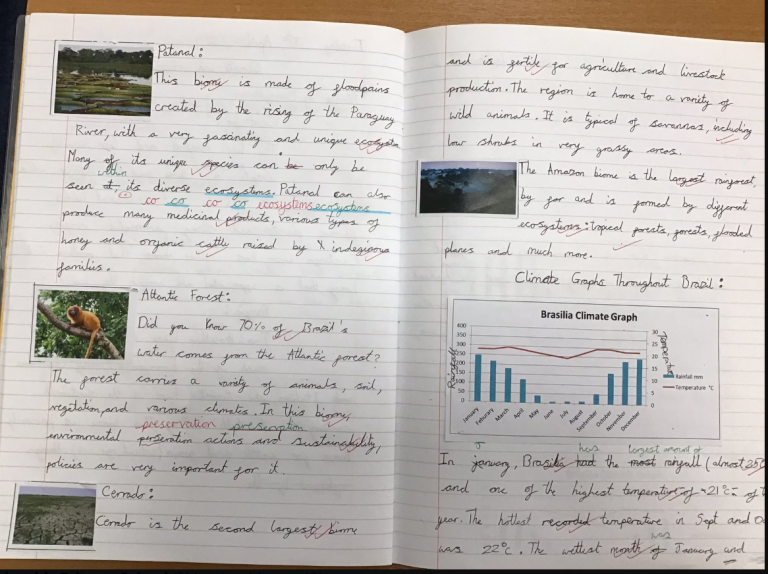 Patanal:
This biome is made of floodpains
created by the rising of the Paraguay
River, with a very fascinating and unique ecosystem
Many of its unique species can be only be
within
seen at, its diverse ecosystems. Patanal can also
co co co co ecosystems ecosystems
produce many medicinal products, various types of
honey and organic cattle raised by indeginous
families.
Atlantic Forest:
Did you know 70% of Brazil's
water comes from the Atlantic forest?
The forest carries a variety of animals, soil,
vegitation, and various climates. In this biome,
preservation preservation
environmental perseration actions and sustainability,
policies are very important for it.
Cerrado:
Cerrado is the second largest biome
and is fertile for agriculture and livestock
production. The region is home to a variety of
wild animals. It is typical of savannas, including
low shrubs in very grassy areas.
The Amazon biome is the largest rainforest,
by far and is formed by different
ecosystems: tropical forests, forests, flooded
planes and much more.
Climate Graphs Throughout Brazil:
Brasilia Climate Graph
Rainfall
400
350
300
250
200
150
100
50
0
30
25
20
15
10
5
0
Temperature
January
Feburary
March
April
May
June
July
August
September
October
November
December
Rainfall mm
Temperature °C
J has largest amount of
In january, Brasilia had the most rainfall (almost 250
and one of the highest temperature of ~21°C of
year. The hottest recorded temperature in Sept and
was
was 22°C. The wettest month of January and